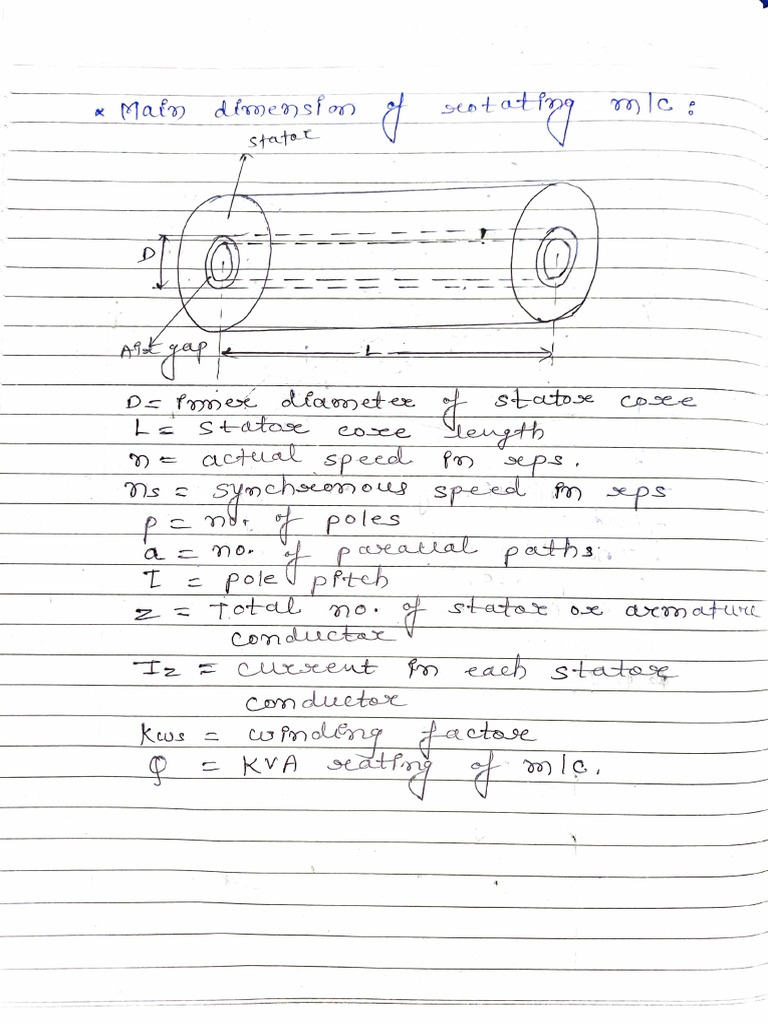 * Main dimension of rotating m/c :
stator
D
Air gap
L
D = inner diameter of stator core
L = stator core length
n = actual speed in rps.
ns = synchronous speed in rps
p = no. of poles
a = no. of parallal paths.
τ = pole pitch
z = Total no. of stator or armature
conductor
Iz = current in each stator
conductor
Kws = winding factor
Q = KVA rating of m/c.